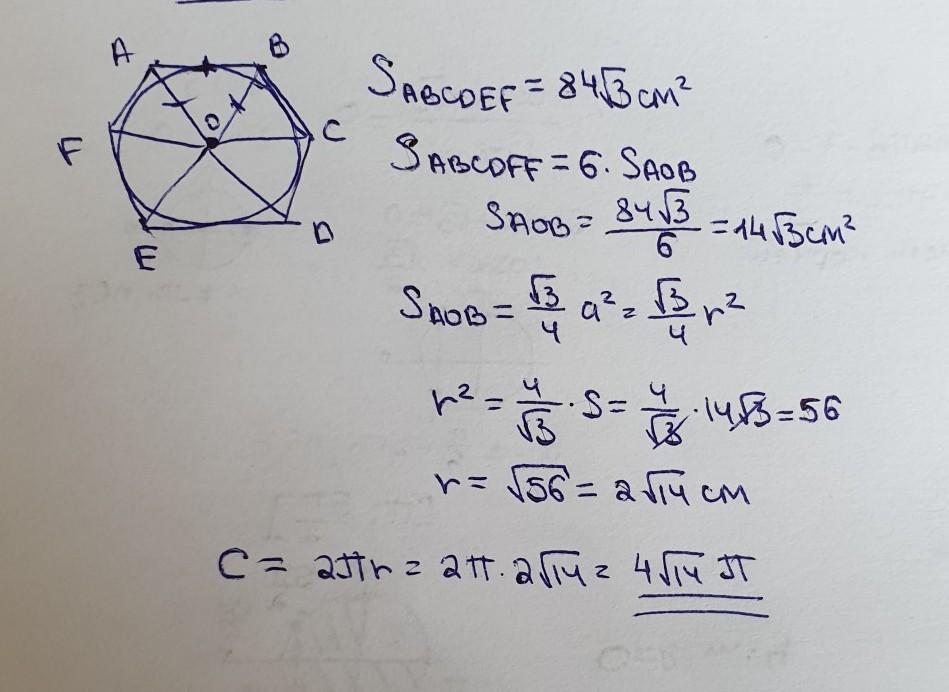 A B
F O C
E D
S_ABCDEF = 84√3 cm²
S_ABCDFF = 6 · S_AOB
S_AOB = 84√3/6 = 14√3 cm²
S_AOB = √3/4 a² = √3/4 r²
r² = 4/√3 · S = 4/√3 · 14√3 = 56
r = √56 = 2√14 cm
C = 2πr = 2π · 2√14 = 4√14 π